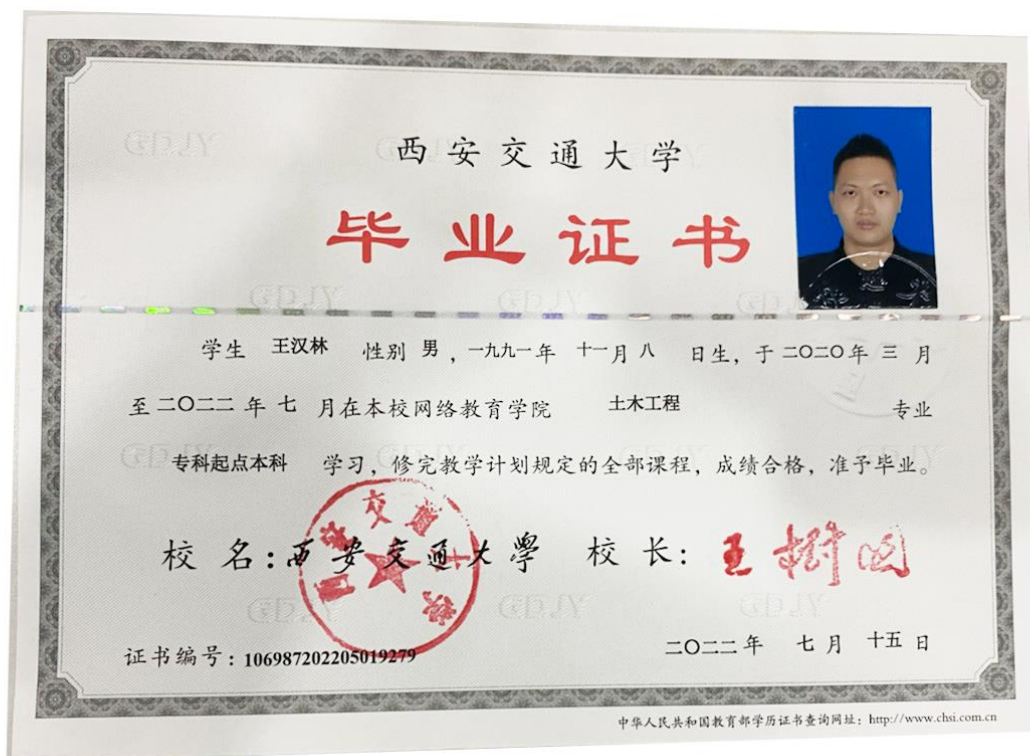 西安交通大学
毕业证书
学生 王汉林 性别 男，一九九一年 十一月 八 日生，于二〇二〇年 三 月
至二〇二二 年 七 月在本校网络教育学院 土木工程 专业
专科起点本科 学习，修完教学计划规定的全部课程，成绩合格，准予毕业。
校 名：西安交通大學 校 长：王树国
证书编号：106987202205019279 二〇二二年 七月 十五日
中华人民共和国教育部学历证书查询网址：http://www.chsi.com.cn